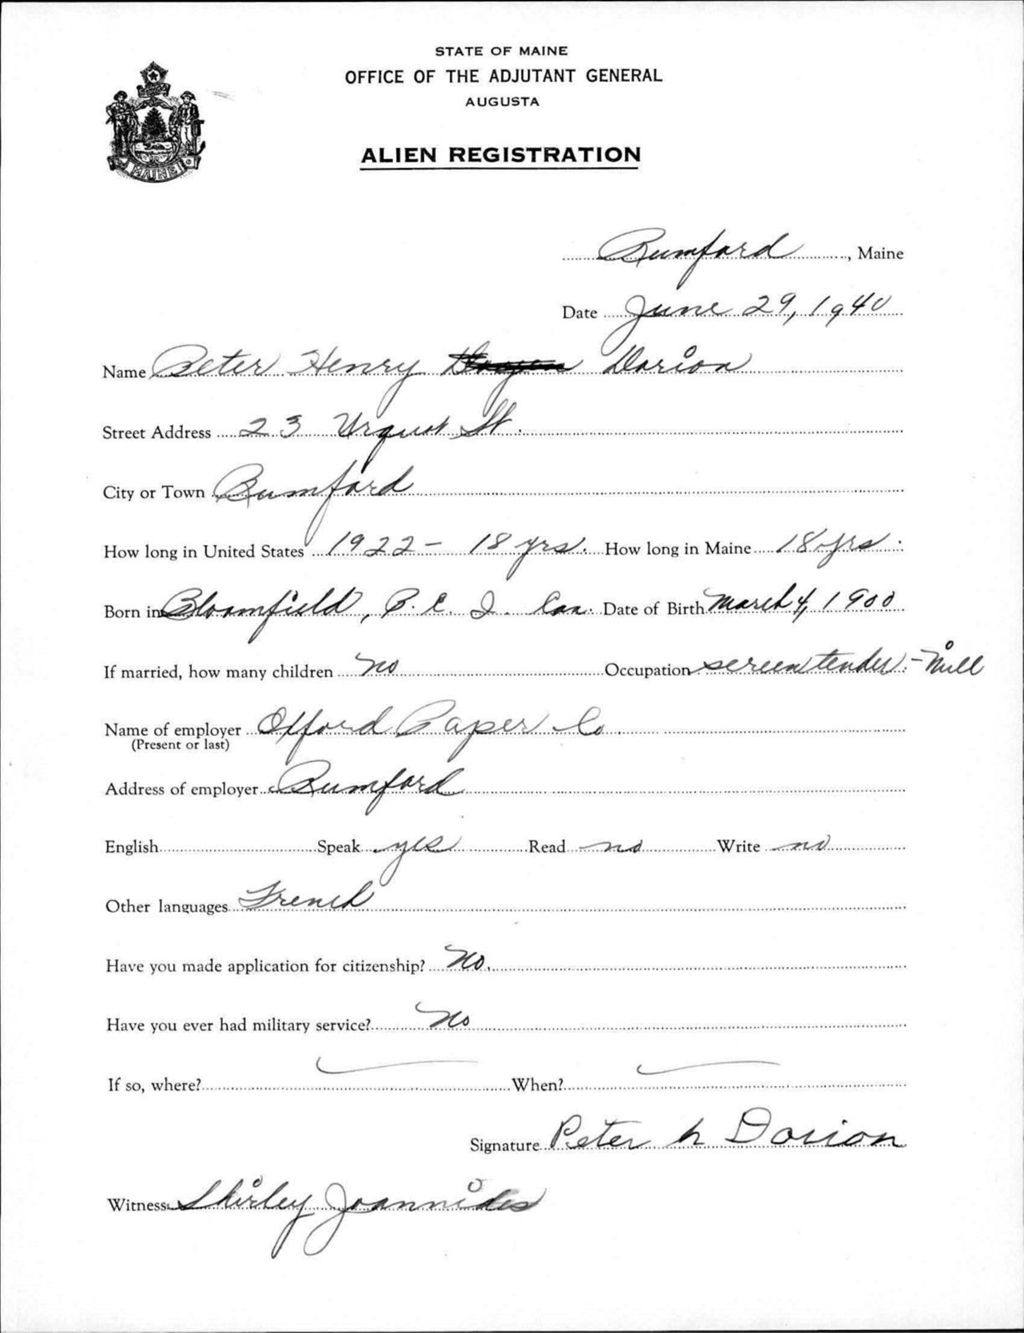 STATE OF MAINE
OFFICE OF THE ADJUTANT GENERAL
AUGUSTA
ALIEN REGISTRATION
Rumford, Maine
Date June 29, 1940
Name Peter Henry Dorion
Street Address 23 Urquart St.
City or Town Rumford
How long in United States 1922 - 18 yrs. How long in Maine 18 yrs.
Born in Bloomfield, P. E. I. Can. Date of Birth March 4, 1900
If married, how many children no Occupation screen tender - Mill
Name of employer Oxford Paper Co
(Present or last)
Address of employer Rumford
English Speak yes Read no Write no
Other languages French
Have you made application for citizenship? No.
Have you ever had military service? No
If so, where? — When? —
Signature Peter h Dorion
Witness Shirley Joannides
MAINE